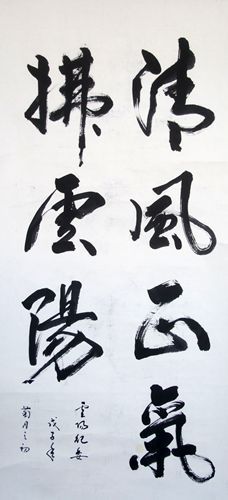 清風正氣
拂雲陽
雲陽紀委
戊子年
菊月之初